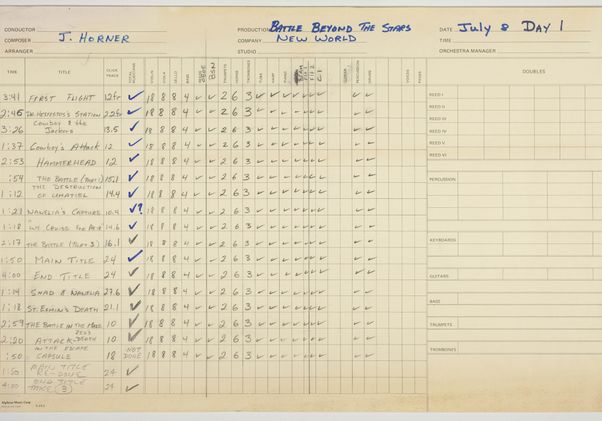 CONDUCTOR
COMPOSER J. HORNER
ARRANGER
PRODUCTION BATTLE BEYOND THE STARS
COMPANY NEW WORLD
STUDIO
DATE JULY 8 DAY 1
TIME
ORCHESTRA MANAGER
TIME TITLE CLICK TRACK BSN DOUBLES
3:41 FIRST FLIGHT 12fr ✓ 18 8 8 4 ✓ ✓ 2 6 3
2:45 STATION 22fr ✓ 18 8 8 4 ✓ ✓ 2 6 3
3:26 COWBOY & the Jackers 13.5 ✓ 18 8 8 4 ✓ ✓ 2 6 3
1:37 COWBOY'S ATTACK 12 ✓ 18 8 8 4 ✓ ✓ 2 6 3
2:53 HAMMERHEAD 12 ✓ 18 8 8 4 ✓ ✓ 2 6 3
:54 THE BATTLE (PART 1) 15.1 ✓ 18 8 8 4 ✓ ✓ 2 6 3
1:12 THE DESTRUCTION OF UMATIEL 14.4 ✓ 18 8 8 4 ✓ ✓ 2 6 3
1:21 NANELIA'S CAPTURE 10.4 ✓? 18 8 8 4 ✓ ✓ 2 6 3
1:18 CRUISE FOR 14.6 ✓ 18 8 8 4 ✓ ✓ 2 6 3
2:17 THE BATTLE (PART 3) 16.1 ✓ 18 8 8 4 ✓ ✓ 2 6 3
1:50 MAIN TITLE 24 ✓ 18 8 8 4 ✓ ✓ 2 6 3
4:00 END TITLE 24 ✓ 18 8 8 4 ✓ ✓ 2 6 3
1:14 SHAD & NANELIA 27.6 ✓ 18 8 8 4 ✓ ✓ 2 6 3
1:18 ST. EXMIN'S DEATH 21.1 ✓ 18 8 8 4 ✓ ✓ 2 6 3
2:59 THE BATTLE IN THE 10 ✓ 18 8 8 4 ✓ ✓ 2 6 3
2:20 ATTACK DEATH 10 ✓ 18 8 8 4 ✓ ✓ 2 6 3
:50 IN THE ESCAPE CAPSULE 18 NOT DONE 18 8 8 4 ✓ ✓ 2 6 3
1:50 MAIN TITLE 24 ✓
4:00 END TITLE TAKE (3) 24 ✓
REED I
REED II
REED III
REED IV
REED V
REED VI
PERCUSSION
KEYBOARDS
GUITARS
BASS
TRUMPETS
TROMBONES